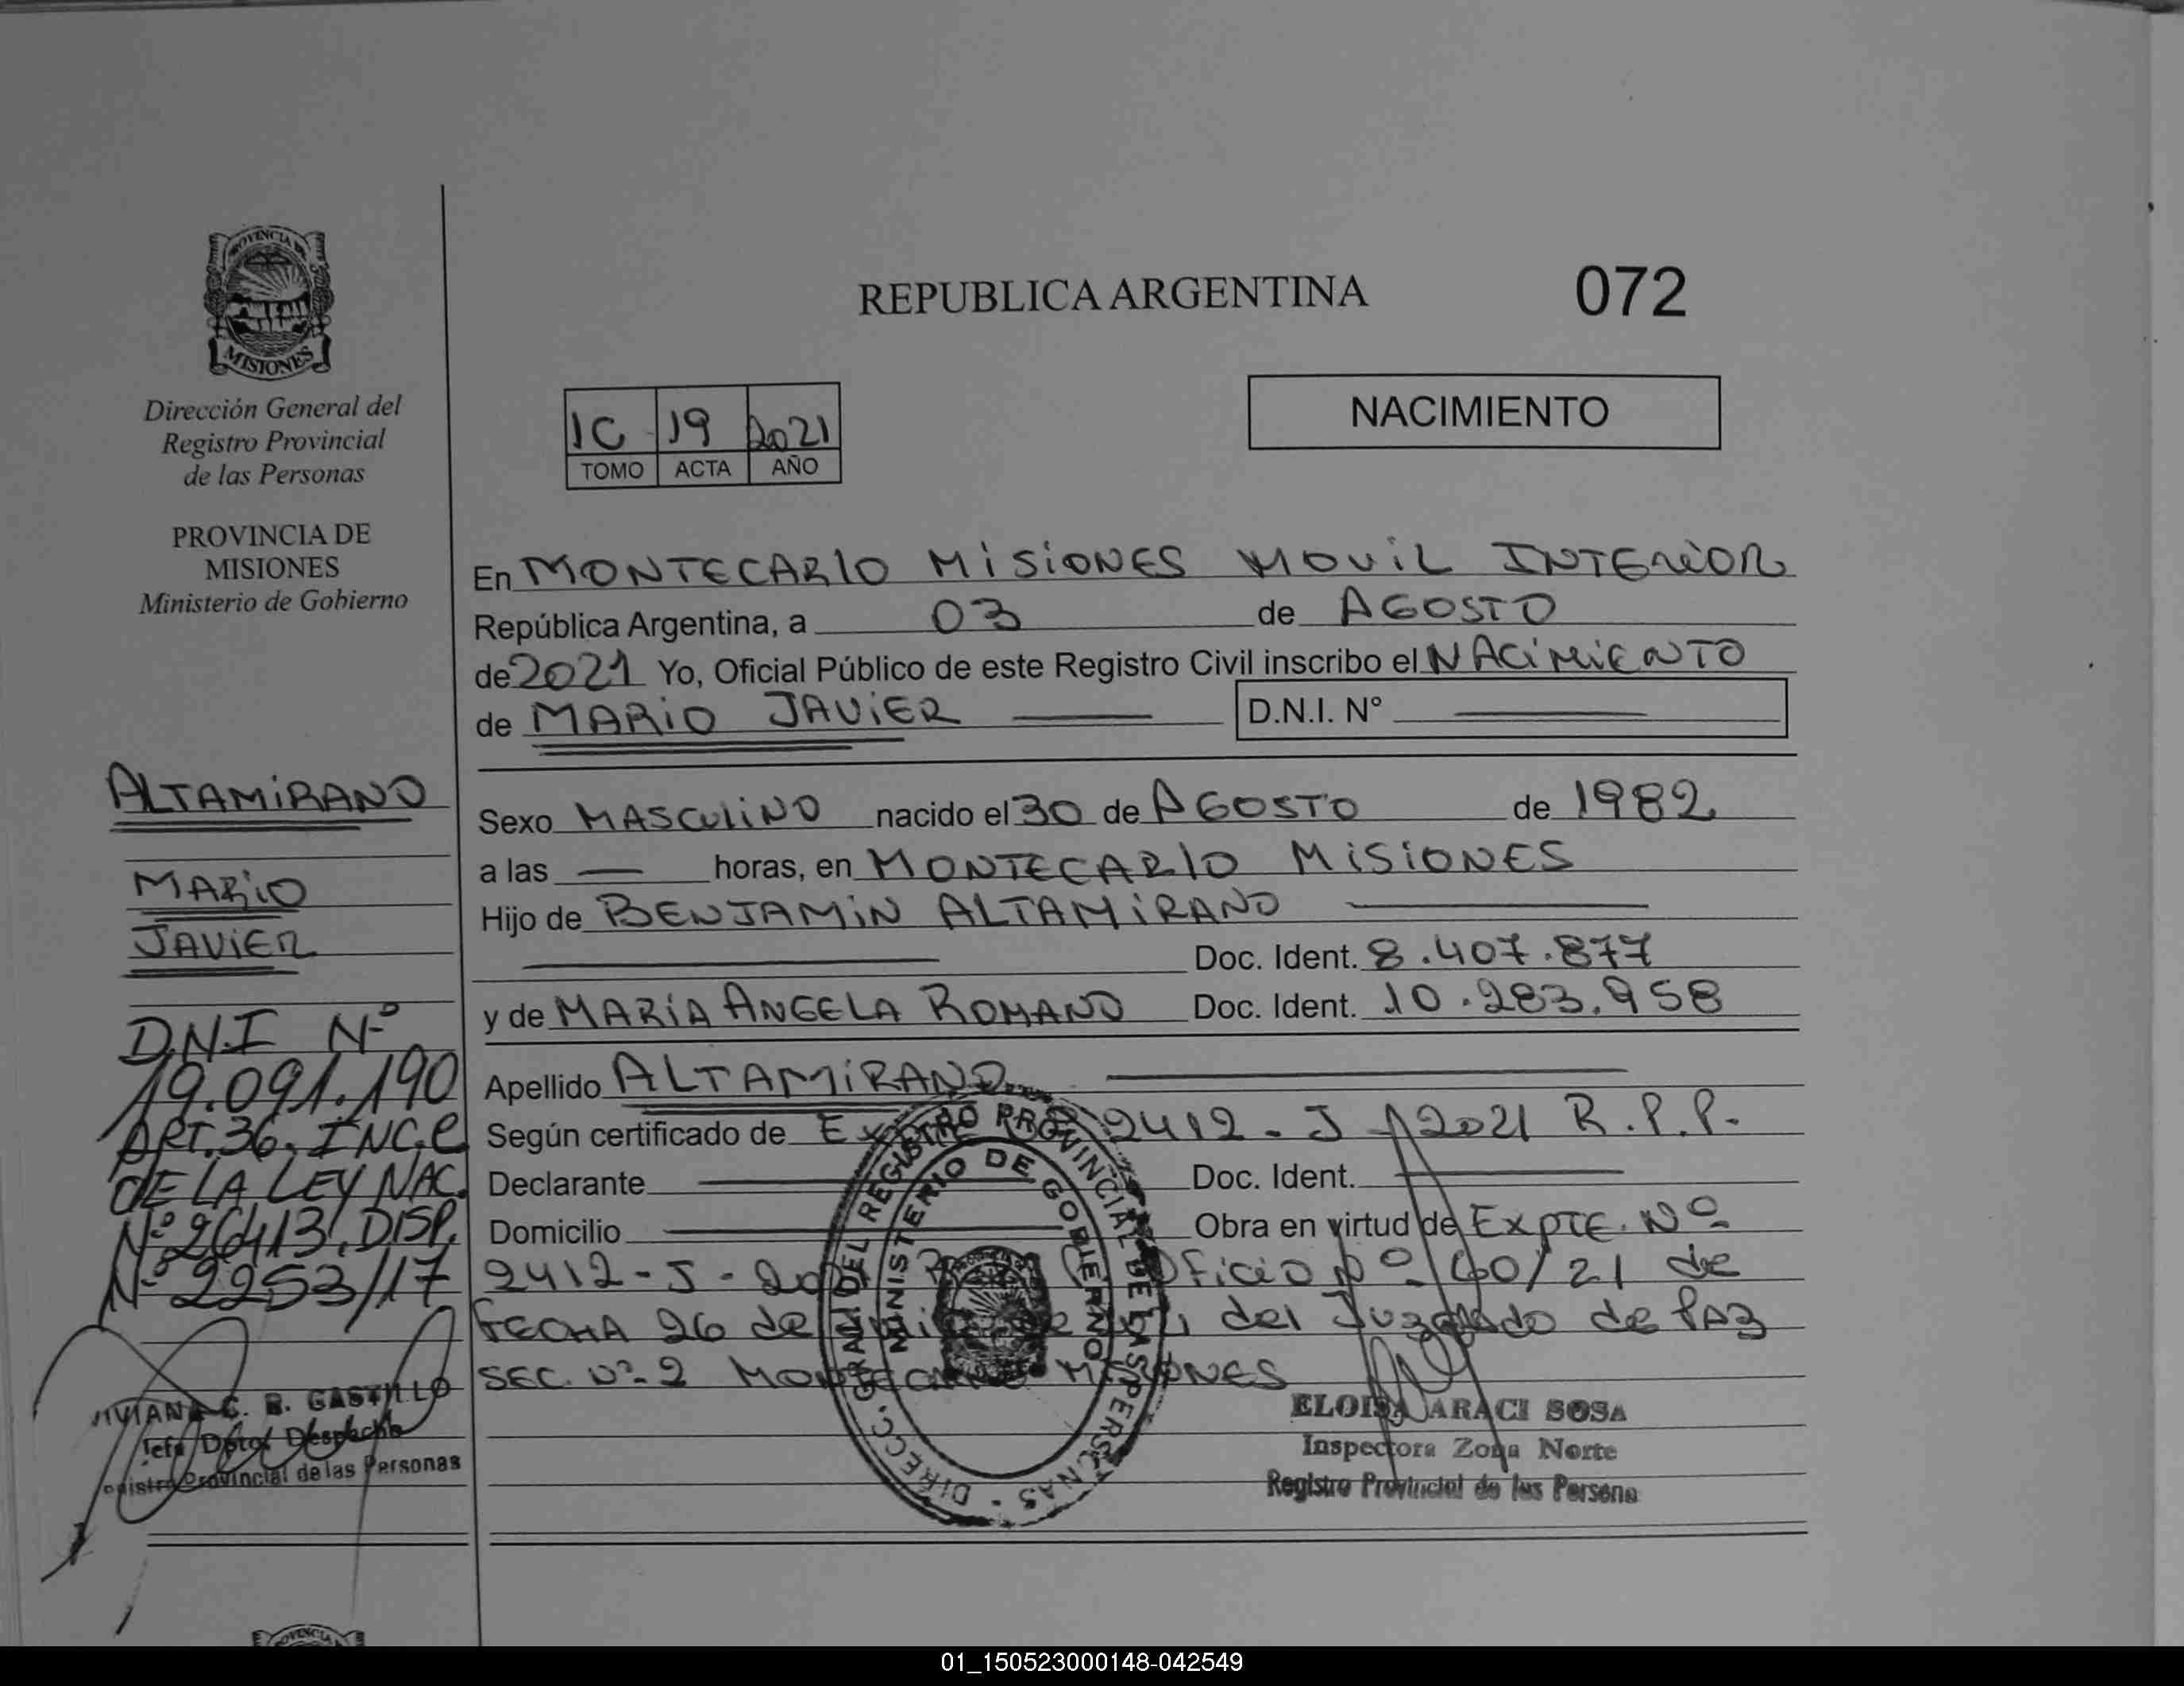 PROVINCIA DE
MISIONES
Dirección General del
Registro Provincial
de las Personas
PROVINCIA DE
MISIONES
Ministerio de Gobierno
ALTAMIRANO
MARIO
JAVIER
D.N.I Nº
19.091.190
ART. 36, INC. e
DE LA LEY NAC.
Nº 26413, DISP.
Nº 2253/17
VIVIANA C. B. CASTILLO
Jefa Dpto. Despacho
Registro Provincial de las Personas
REPUBLICA ARGENTINA
072
1C 19 2021
TOMO ACTA AÑO
NACIMIENTO
En MONTECARLO MISIONES MOVIL INTERIOR
República Argentina, a 03 de AGOSTO
de 2021 Yo, Oficial Público de este Registro Civil inscribo el NACIMIENTO
de MARIO JAVIER D.N.I. N°
Sexo MASCULINO nacido el 30 de AGOSTO de 1982
a las horas, en MONTECARLO MISIONES
Hijo de BENJAMIN ALTAMIRANO
Doc. Ident. 8.407.877
y de MARIA ANGELA ROMANO Doc. Ident. 10.283.958
Apellido ALTAMIRANO
Según certificado de 2412 - J - 2021 R.P.P.
Declarante Doc. Ident.
Domicilio Obra en virtud de EXPTE. Nº
2412 - J - OFICIO Nº /21 de
FECHA 26 de del Juzgado de PAZ
SEC. Nº 2 MONTECARLO MISIONES
DIRECC. GRAL. DEL REGISTRO PROVINCIAL DE LAS PERSONAS
MINISTERIO DE GOBIERNO
ELOISA ARACI SOSA
Inspectora Zona Norte
Registro Provincial de las Persona
PROVINCIA
01_150523000148-042549